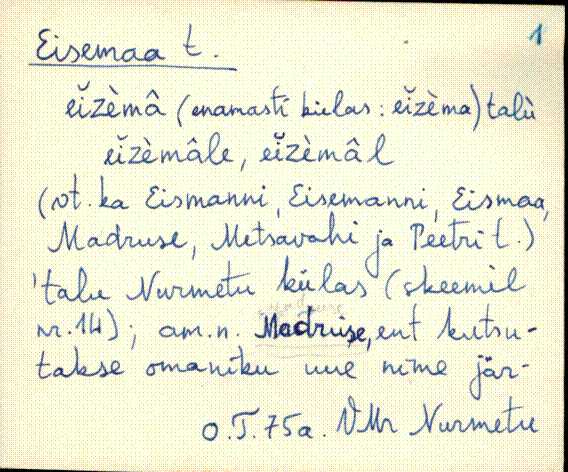 Eisemaa t. 1
eĭzèmâ (enamasti külas: eĭzèma) talù
eĭzèmâle, eĭzèmâl
(vt. ka Eismanni, Eisemanni, Eismaa,
Madruse, Metsavahi ja Peetri t.)
'talu Nurmetu külas (skeemil
nr. 14); am.n. Madruse, ent kutsu-
takse omaniku uue nime jär-
O.T. 75a. VMr Nurmetu